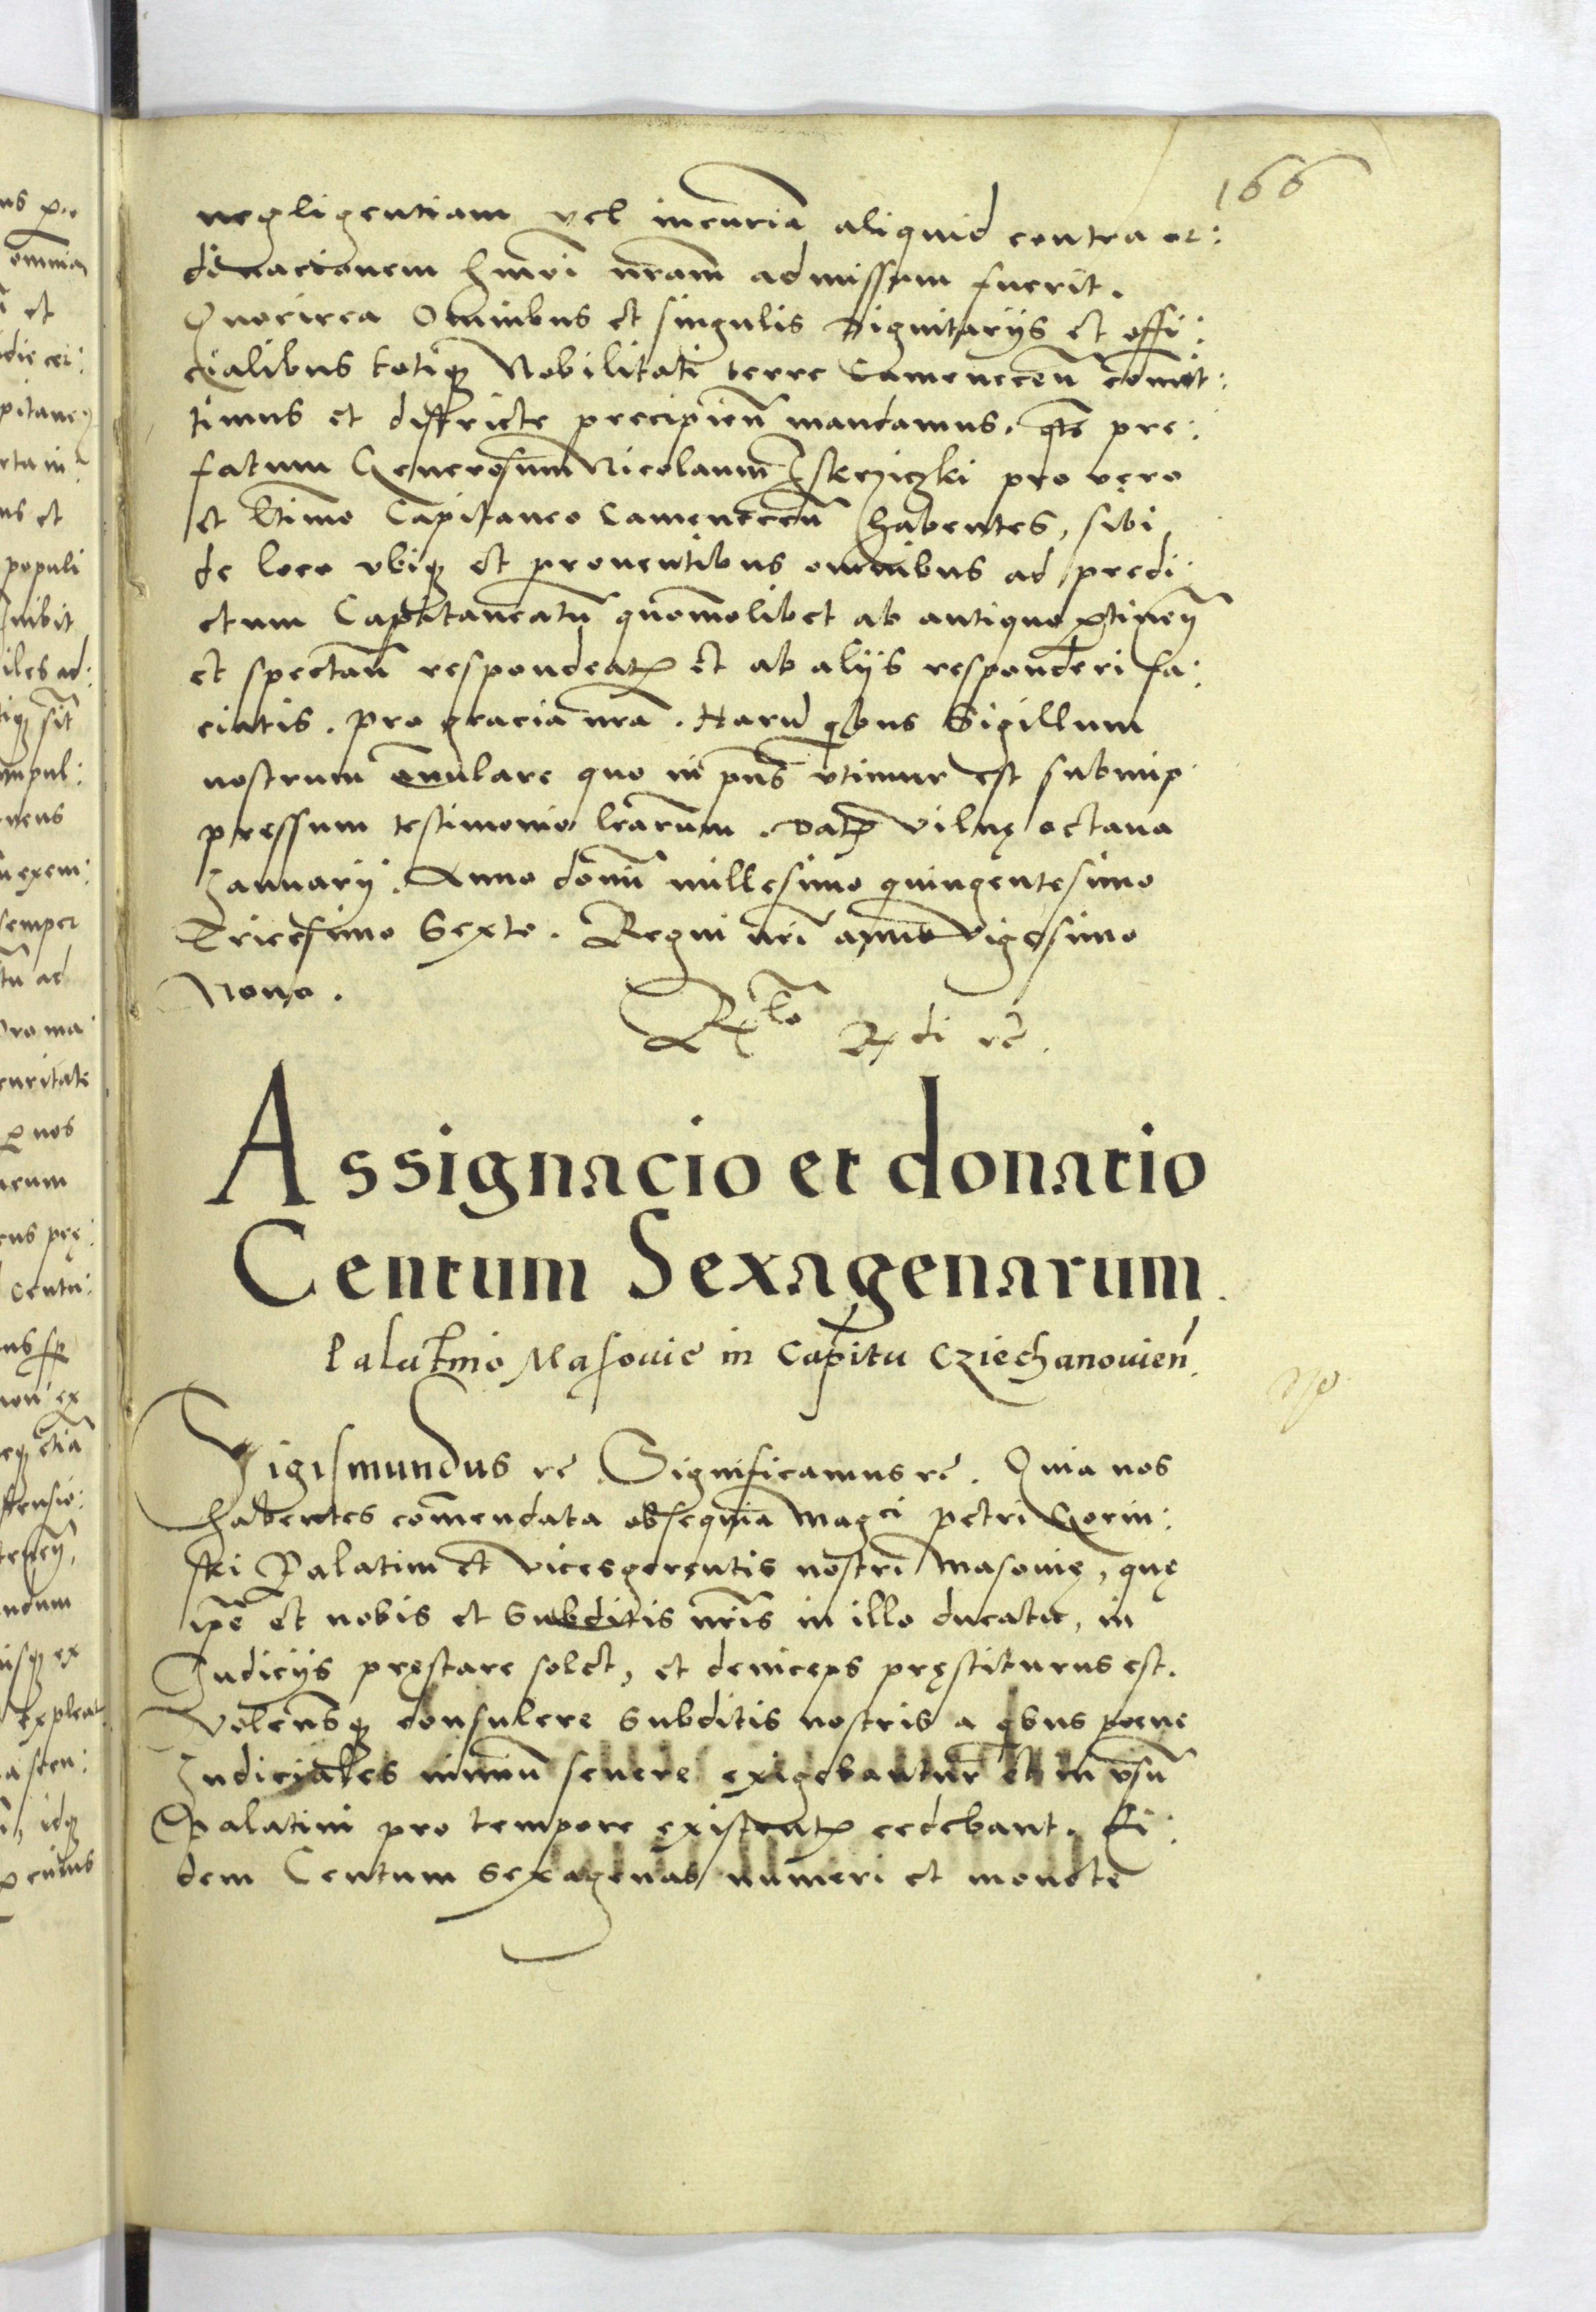 166
negligentiam vel incuriã aliquid contra or:
dinacionem hmõi nr̃am admissum fuerit.
Quocirca Omnibus et singulis Dignitarijs et offi:
cialibus totiq; Nobilitati terre Camenecen̄ comit:
timus et districte precipien̄ mandamus. qt̃e pre:
fatum Generosum Nicolaum Iskrziczki pro vęro
et ltimo Capitaneo Camenecen̄ habentes, sibi
de loco vbiq; et prouentibus omnibus ad predi:
ctum Capitaneatū quomolibet ab antiquo ptineñ
et spectan̄ respondeatꝫ et ab alijs responderi fa:
ciatis. pro gracia nrã. Harū qbus Sigillum
nostrum Anulare quo in pn̄s vtimur est subimp:
pressum testimonio lr̃arum. Datꝫ Vilnę octaua
Januarij. Anno domi millesimo quingentesimo
Tricesimo Sexto. Regni nr̃i anno Vigesimo
Nono.
Rlo R di rc̃.
Assignacio et donatio
Centum Sexagenarum.
Palatino Masouie in Capitu Cziechanouien̄.
Sigismundus rc̃. Significamus rc̃. Quia nos
habentes com̃endata obsequia Magci Petri Gorin:
ski Palatini et Vicesgerentis nostri Masouię, quę
ip̃e et nobis et Subditis nr̃is in illo ducatu, in
Judicijs pręstare solet, et deinceps pręstiturus est.
Volensq; consulere Subditis nostris a qbus poene
Judiciales nimiū seuere exigebantur et in vsū
Palatini pro tempore existeñtꝫ cedebant. Ei:
dem Centum Sexagenas numeri et monete